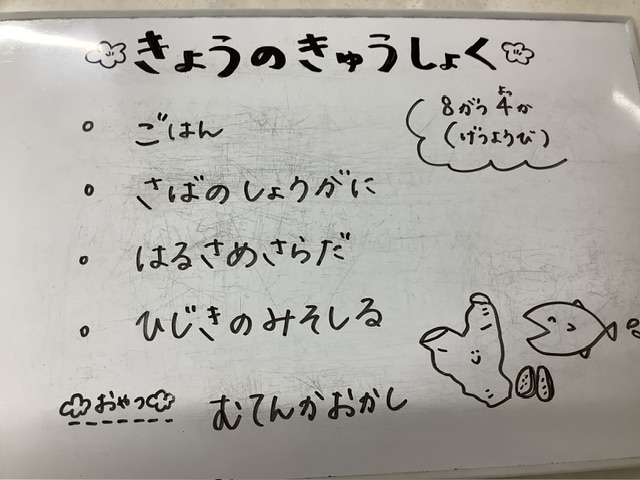 きょうのきゅうしょく
8がつ4か
よっ
(げつようび)
ごはん
さばのしょうがに
はるさめさらだ
ひじきのみそしる
おやつ むてんかおかし